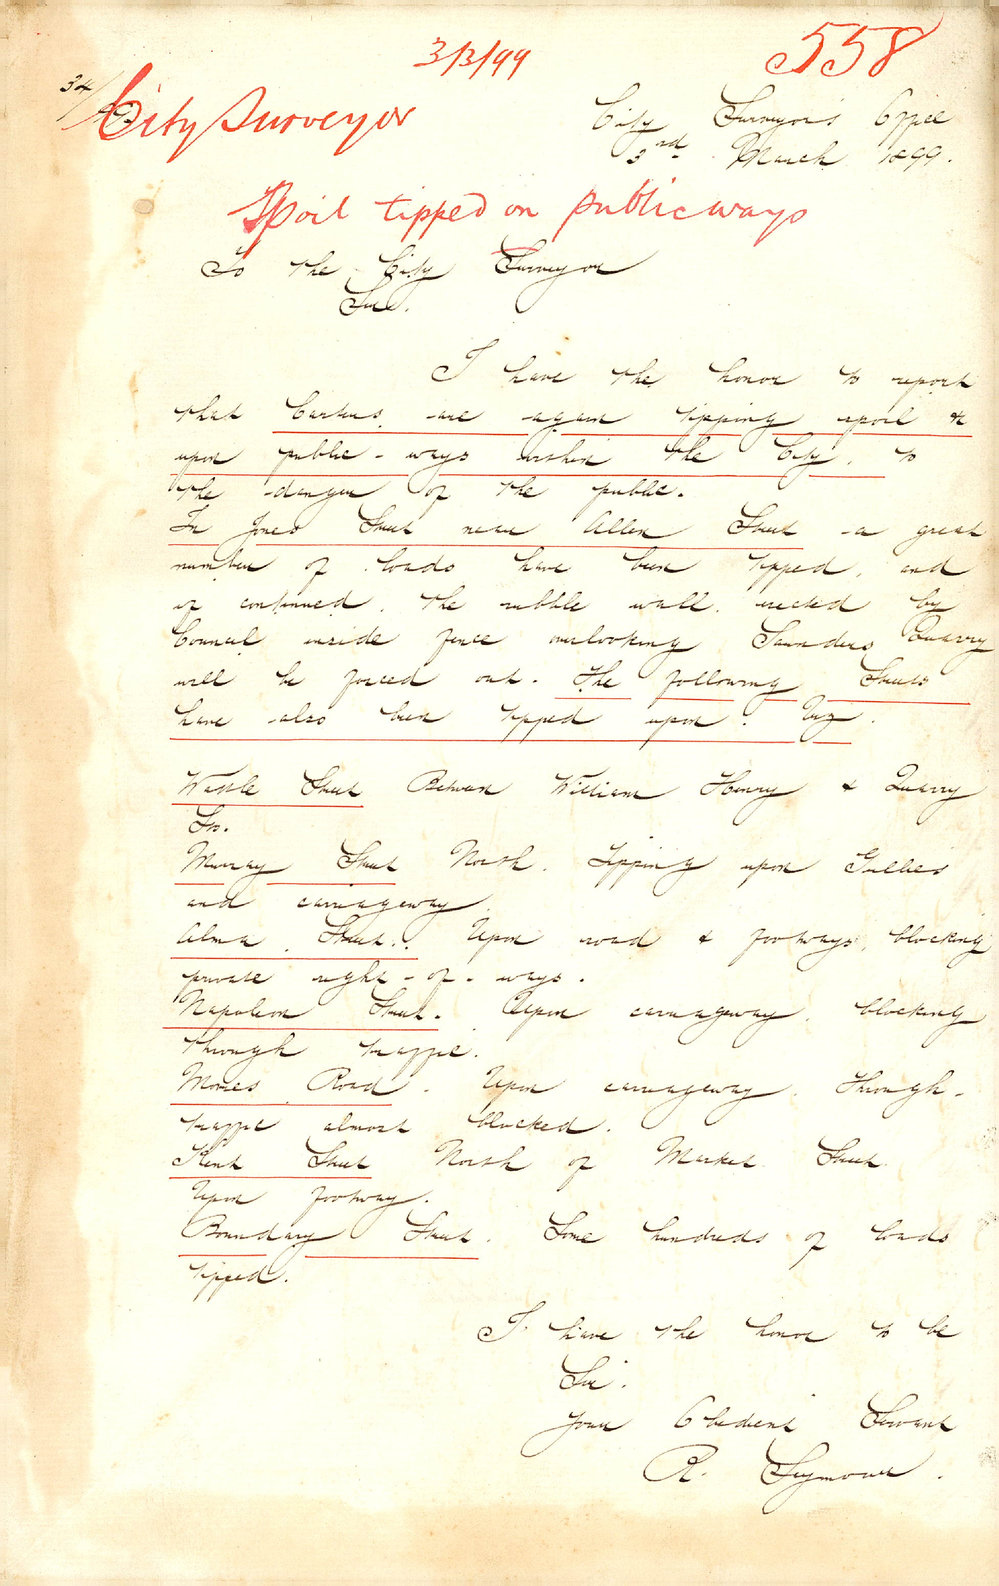 3/3/99
558
34/
City Surveyor
City Surveyor's Office
3rd March 1899.
Spoil tipped on public ways
To the City Surveyor
Sir.
I have the honor to report
that Carters are again tipping spoil &c
upon public-ways within the City. to
the danger of the public.
In Jones Street near Allen Street a great
number of loads have been tipped, and
if continued. the rubble wall. erected by
Council inside fence overlooking Saunders Quarry
will be forced out. The following Streets
have also been tipped upon. Viz.
Wattle Street Between William Henry & Quarry
Sts.
Murray Street North. Tipping upon Gullies
and carriageway.
Alma Street. Upon road & footways, blocking
private right-of-ways.
Napoleon Street. Upon carriageway. blocking
through traffic.
Moores Road. Upon carriageway. Through-
traffic almost blocked.
Kent Street North of Market Street
Upon footway.
Boundary Street. Some hundreds of loads
tipped.
I have the honor to be
Sir.
Your Obedient Servant
R. Seymour.